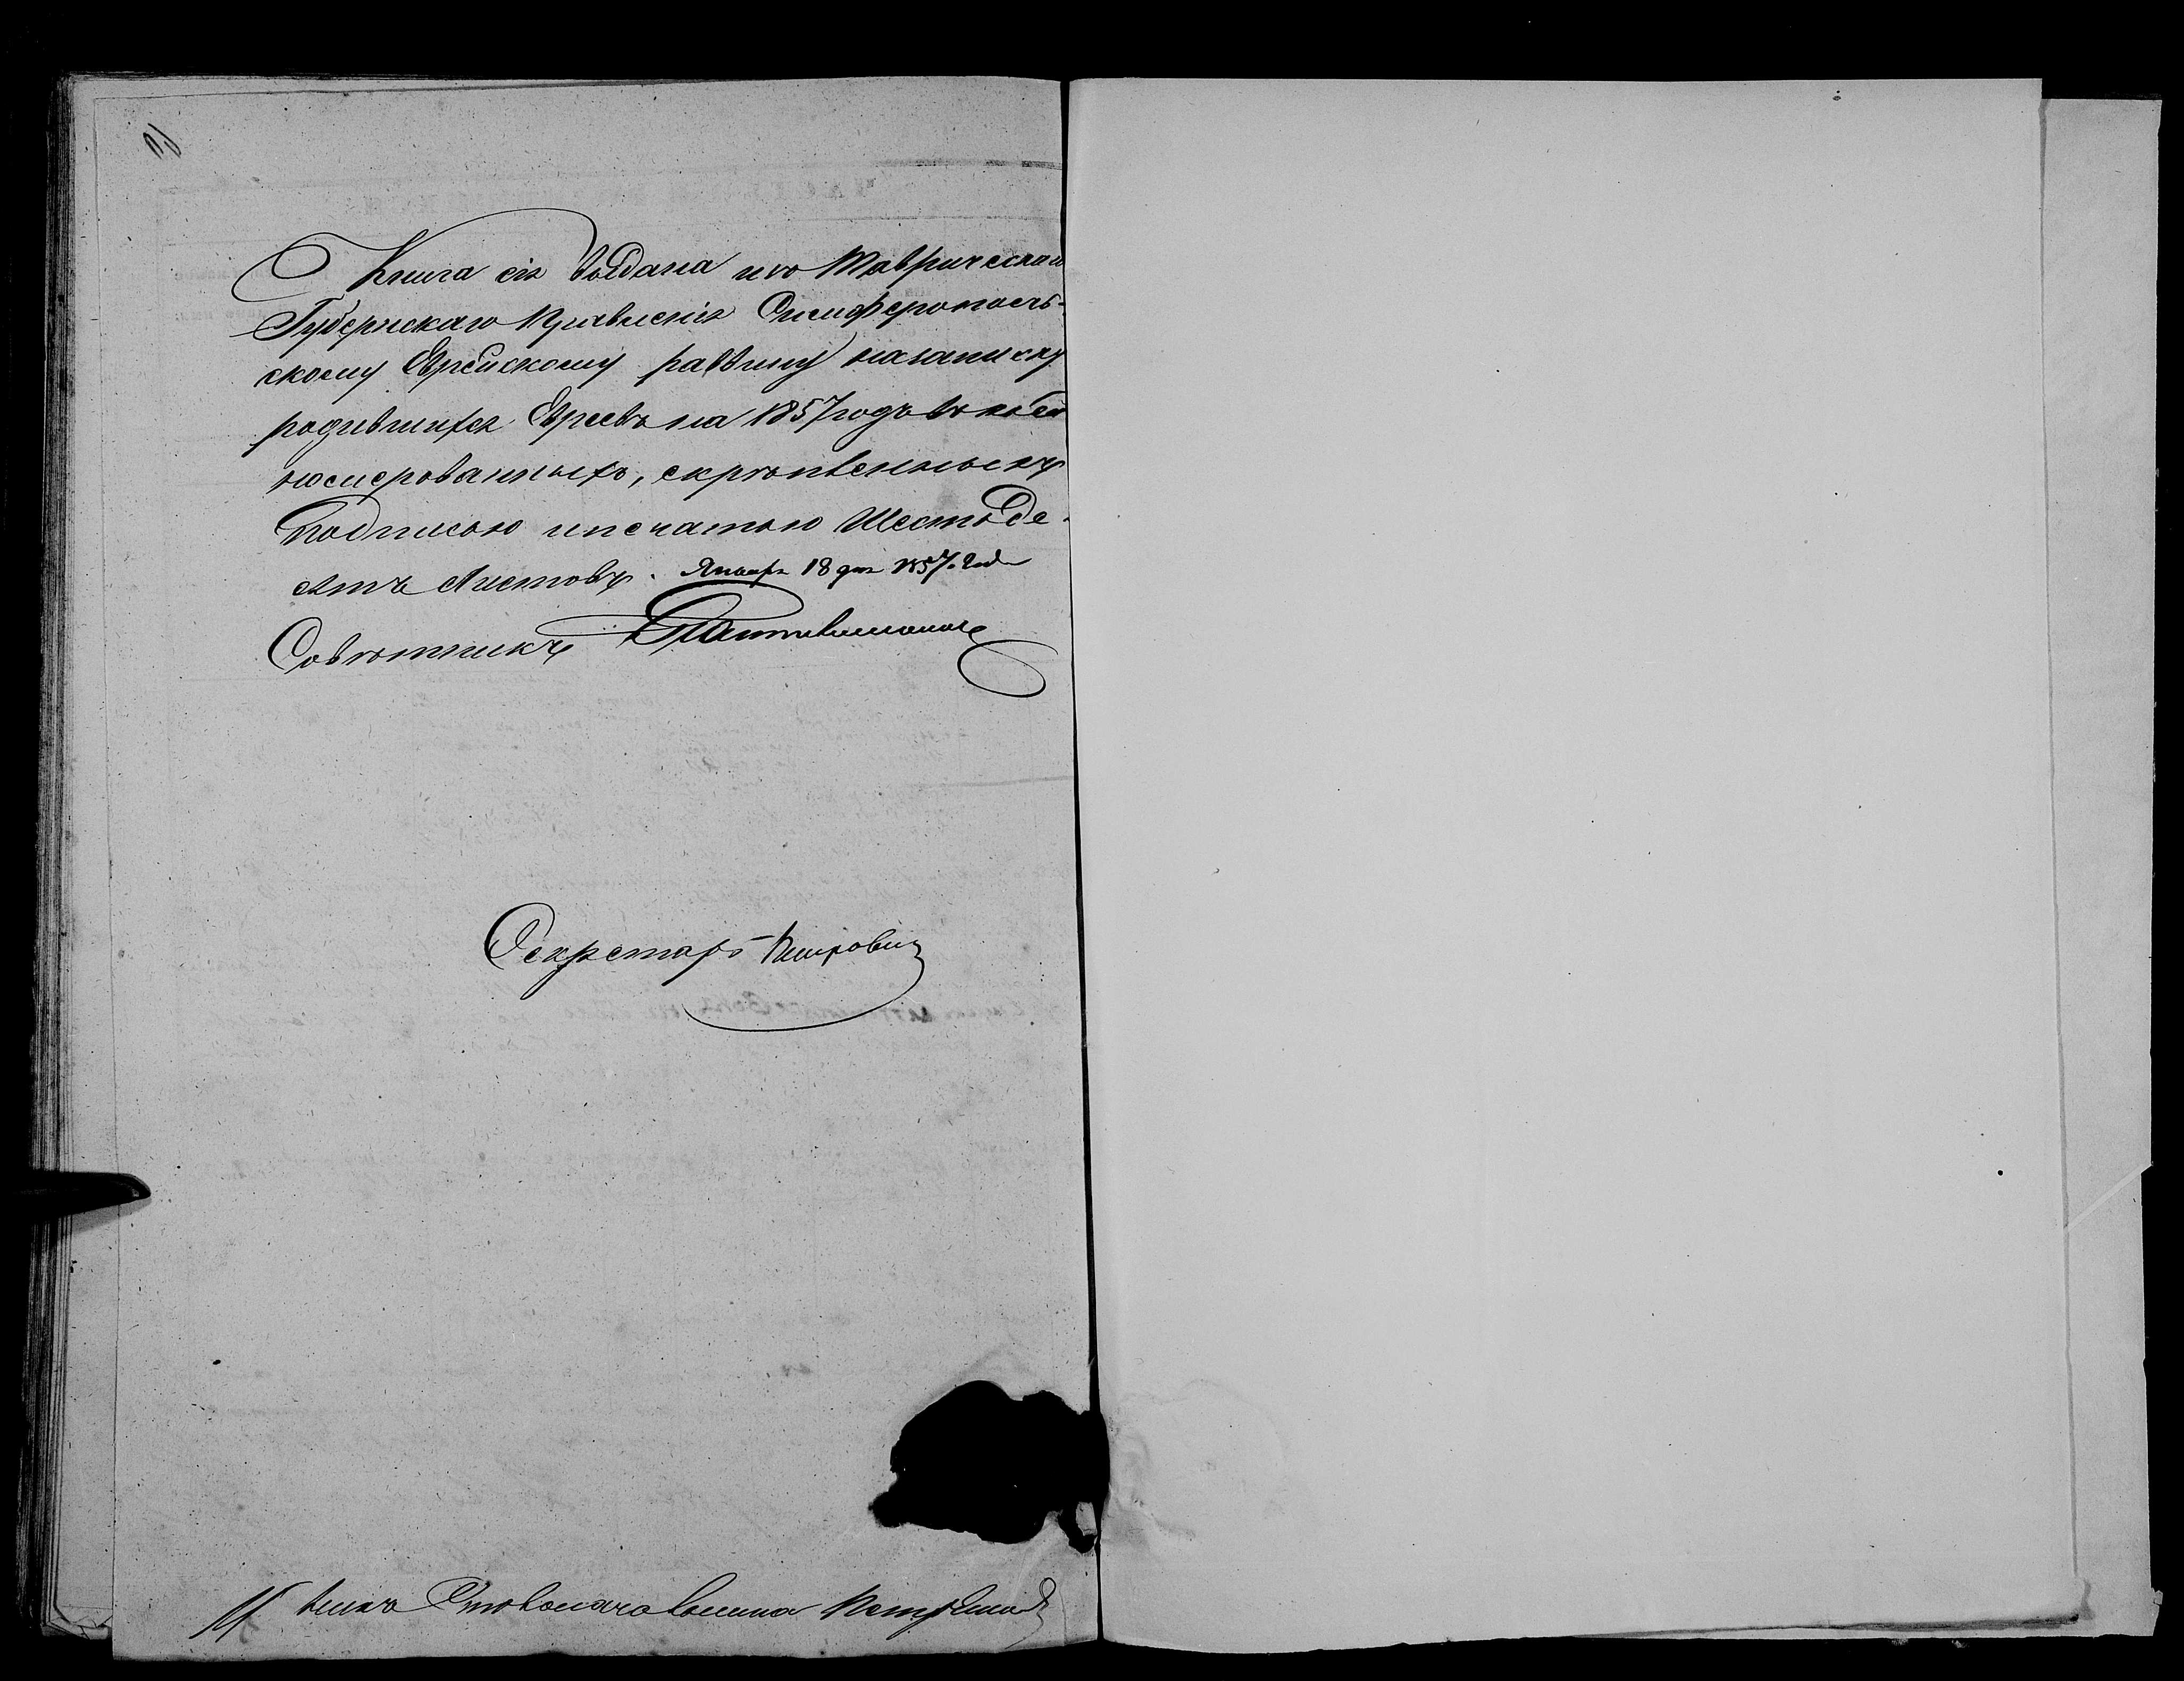 Книга сія выдана изъ Таврическаго
Губернскаго Правленія Симферополь-
скому Еврейскому раввину на записку
родившихся Евреевъ на 1857 годъ въ ней
номерованныхъ, скрѣпленныхъ
подписью и печатью Шестьде-
сятъ Листовъ. Января 18 дня 1857 года
Совѣтникъ
Секретарь